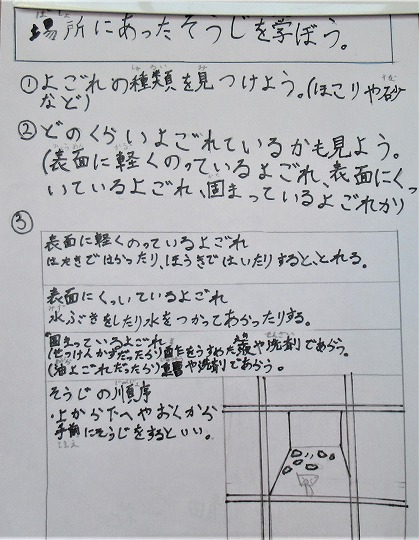 場所にあったそうじを学ぼう。
①よごれの種類を見つけよう。(ほこりや砂
など)
②どのくらいよごれているかも見よう。
(表面に軽くのっているよごれ、表面にくっ
いているよごれ、固まっているよごれか)
③
表面に軽くのっているよごれ
はたきではらったり、ほうきではいたりすると、とれる。
表面にくっいているよごれ
水ぶきをしたり水をつかってあらったりする。
固まっているよごれ
(せっけんかすだったら)酢をうすめた液や洗剤であらう。
(油よごれだったら)重曹や洗剤であらう。
そうじの順序
・上から下へやおくから
手前にそうじをするといい。